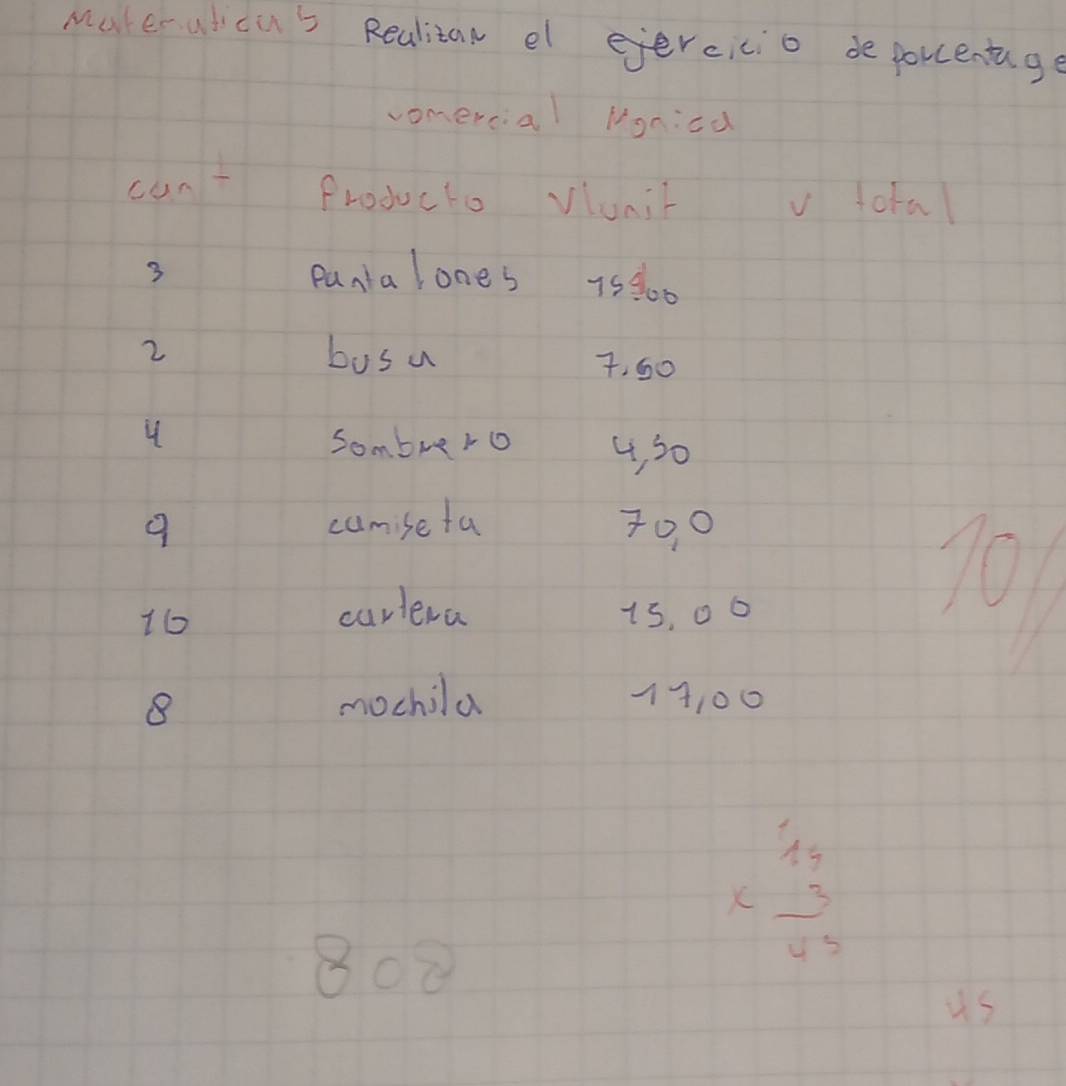 Matematicas Realizar el ejercicio de porcentage
comercial Monica
cant Producto V/unit v total
3 pantalones 15.00
2 busa 7.50
4 sombrero 4,50
9 camiseta 70,0
10 cartera 15.00
8 mochila 17,00
10/
1
15
x 3
45
808
45